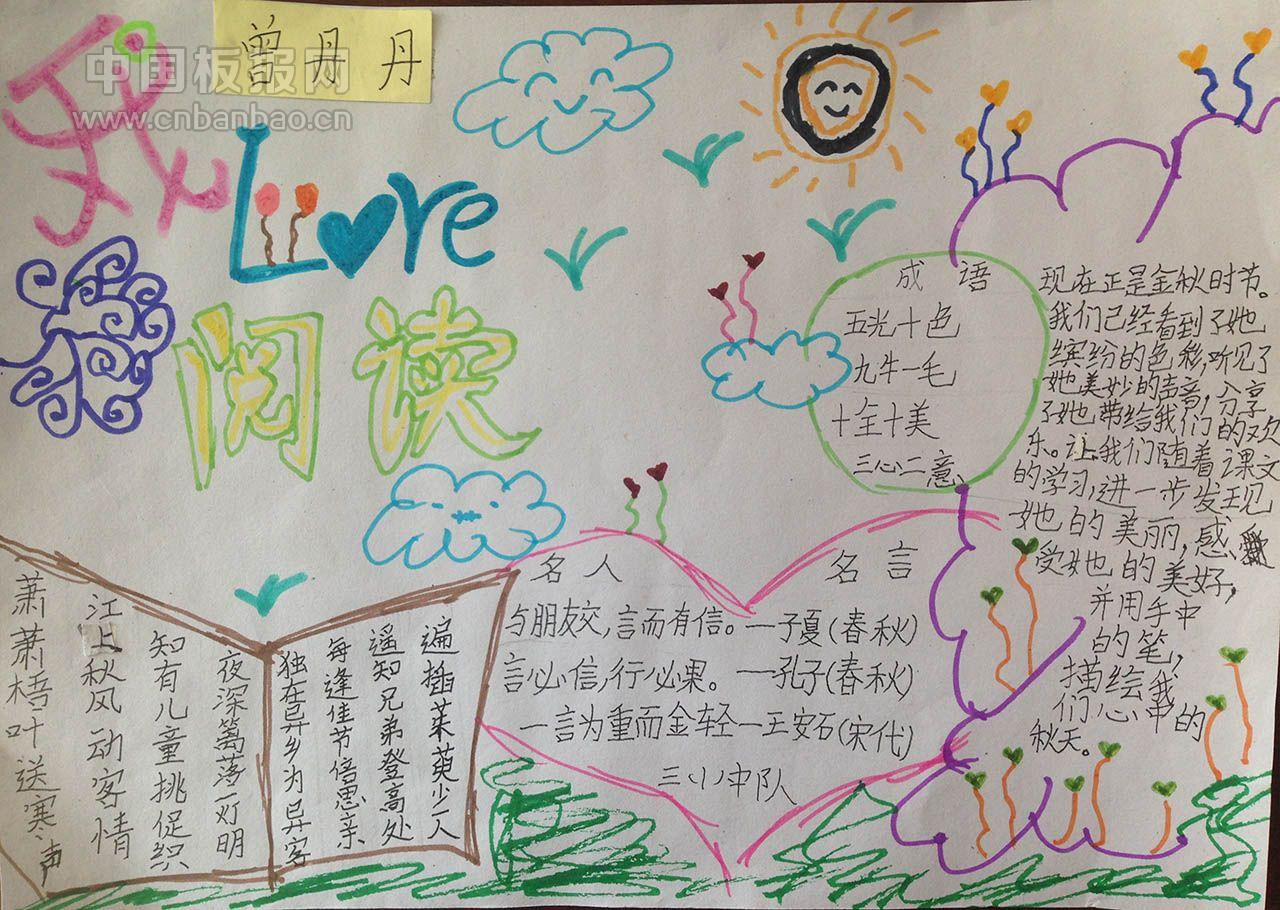 中国板报网
www.cnbanbao.cn
曾丹丹
我
Love
阅读
成语
五光十色
九牛一毛
十全十美
三心二意
现在正是金秋时节。
我们已经看到了她
缤纷的色彩,听见了
她美妙的声音,分享
了她带给我们的欢
乐。让我们随着课文
的学习,进一步发现
她的美丽,感
受她的美好,
并用手中
的笔,
描绘我
们心中的
秋天。
名人名言
与朋友交,言而有信。—子夏(春秋)
言必信,行必果。—孔子(春秋)
一言为重而金轻—王安石(宋代)
三小中队
萧萧梧叶送寒声
江上秋风动客情
知有儿童挑促织
夜深篱落一灯明
独在异乡为异客
每逢佳节倍思亲
遥知兄弟登高处
遍插茱萸少一人